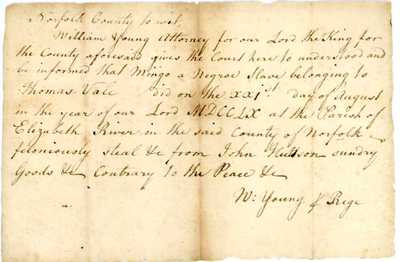 Norfolk County to wit,
William Young Attorney for our Lord the King for
the County aforesaid gives the Court here to understood and
be informed that Mingo a Negroe Slave belonging to
Thomas Vale did on the XXIst day of August
in the year of our Lord MDCCLX at the Parish of
Elizabeth River in the said County of Norfolk
feloniously steal &c from John Hutson sundry
Goods &c Contrary to the Peace &c
Wm Young p Rege